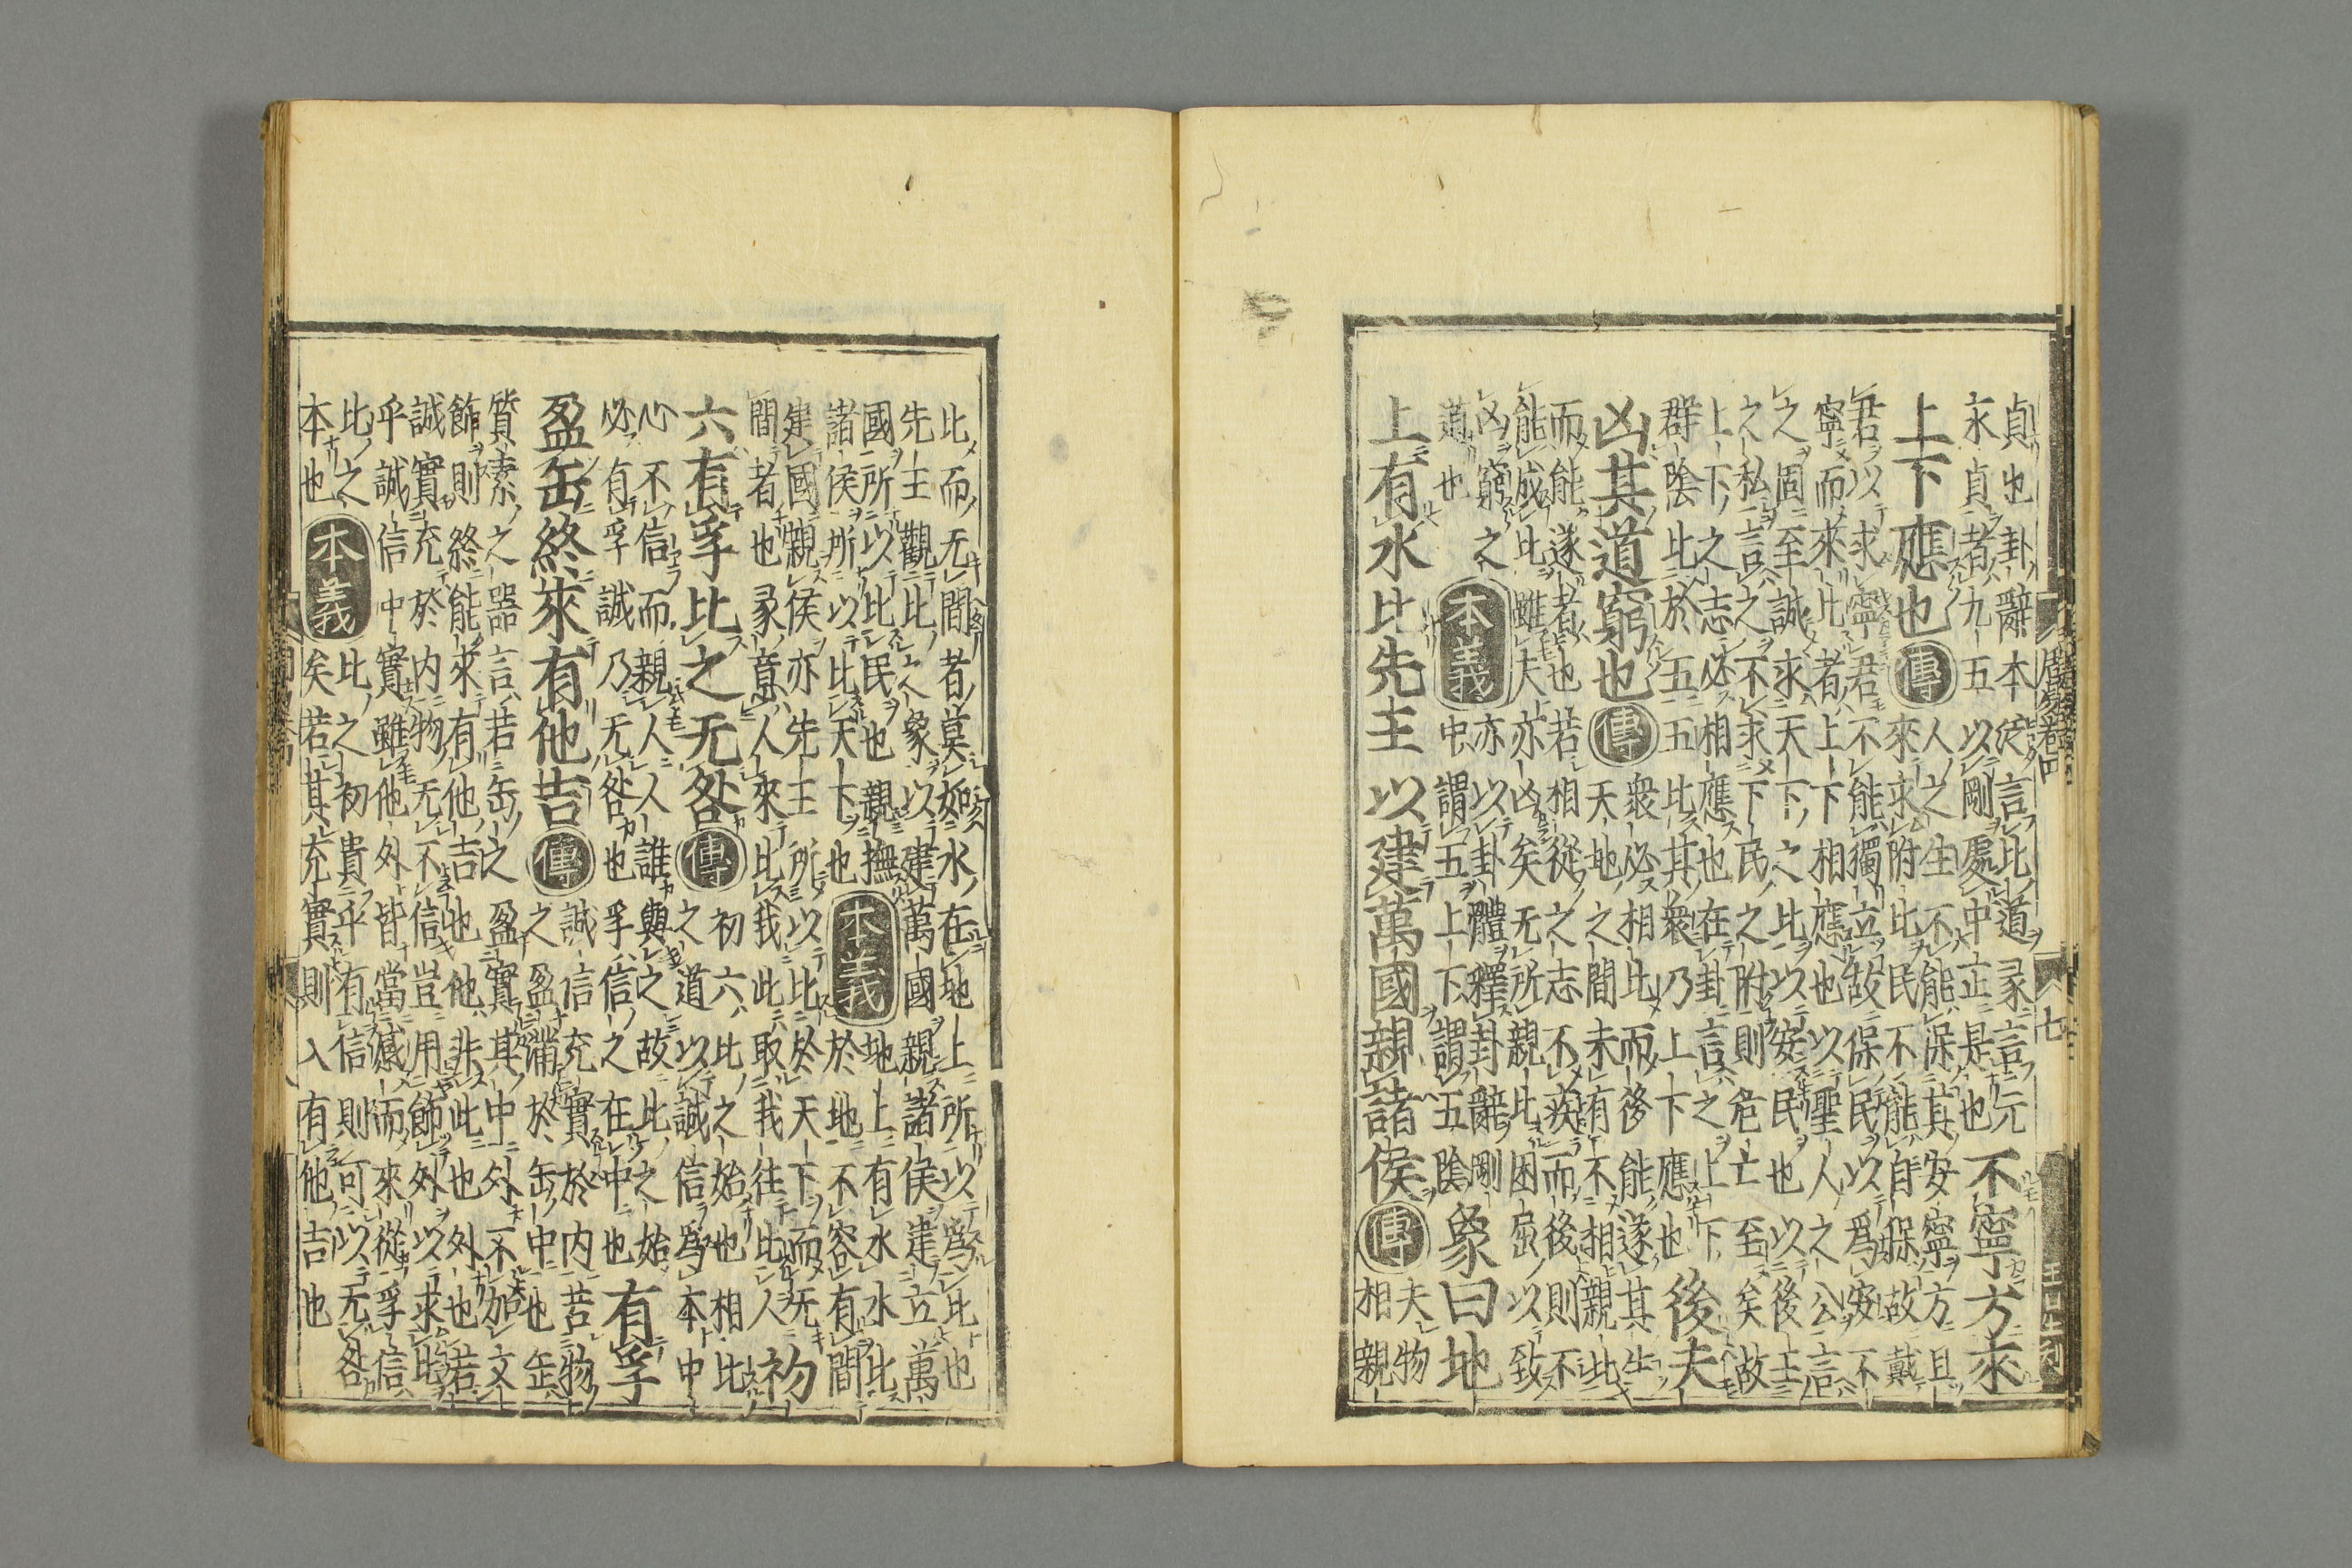 貞也卦辭本從言比道彖言元
永貞者九五以剛處中正是也
不寧方來
上下應也傳
人之生不能保其安寧方且
來求附比民不能自保故戴
君以求寧君不能獨立故保民以爲安不
寧而來比者上下相應也以聖人之公言
之固至誠求天下之比以安民也以後王
之私言之不求下民之附則危亡至矣故
上下之志必相應也在卦言之上下
群陰比於五五比其衆乃上下應也
後夫
凶其道窮也傳
衆必相比而後能遂其生
天地之間未有不相親比
而能遂者也若相從之志不疾而後則不
能成比雖夫亦凶矣无所親比困屈以致
凶窮之
道也
本義
亦以卦體釋卦辭剛
中謂五上下謂五陰
象曰地
上有水比先王以建萬國親諸侯傳
夫物
相親
比而无間者莫如水在地上所以爲比也
先王觀比之象以建萬國親諸侯建立萬
國所以比民也親撫
諸侯所以比天下也
本義
地上有水水比
於地不容有間
建國親侯亦先王所以比於天下而无
間者也彖意人來比我此取我往比人
初
六有孚比之无咎傳
初六比之始也相比
之道以誠信爲本中
心不信而親人人誰與之故比之始
必有孚誠乃无咎也孚信之在中也
有孚
盈缶終來有他吉傳
誠信充實於内若物
之盈滿於缶中也缶
質素之器言若缶之盈實其中外不加文
飾則終能求有他吉也他非此也外也若
誠實充於内物无不信豈用飾外以求比
乎誠信中實雖他外皆當感而來從孚信
比之
本也
本義
比之初貴乎有信則可以无咎
矣若其充實則入有他吉也
周易卷四
七